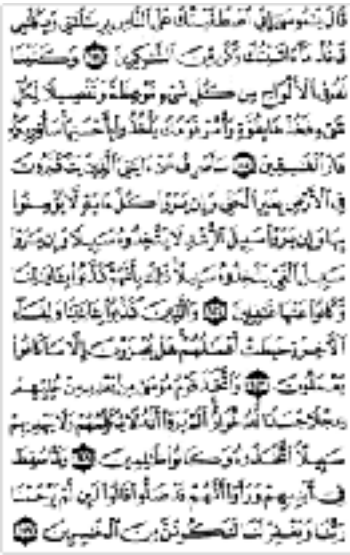 قَالَ يَٰمُوسَىٰٓ إِنِّي ٱصۡطَفَيۡتُكَ عَلَى ٱلنَّاسِ بِرِسَٰلَٰتِي وَبِكَلَٰمِي
فَخُذۡ مَآ ءَاتَيۡتُكَ وَكُن مِّنَ ٱلشَّٰكِرِينَ ١٤٤ وَكَتَبۡنَا
لَهُۥ فِي ٱلۡأَلۡوَاحِ مِن كُلِّ شَيۡءٖ مَّوۡعِظَةٗ وَتَفۡصِيلٗا لِّكُلِّ
شَيۡءٖ فَخُذۡهَا بِقُوَّةٖ وَأۡمُرۡ قَوۡمَكَ يَأۡخُذُواْ بِأَحۡسَنِهَاۚ سَأُوْرِيكُمۡ
دَارَ ٱلۡفَٰسِقِينَ ١٤٥ سَأَصۡرِفُ عَنۡ ءَايَٰتِيَ ٱلَّذِينَ يَتَكَبَّرُونَ
فِي ٱلۡأَرۡضِ بِغَيۡرِ ٱلۡحَقِّ وَإِن يَرَوۡاْ كُلَّ ءَايَةٖ لَّا يُؤۡمِنُواْ
بِهَا وَإِن يَرَوۡاْ سَبِيلَ ٱلرُّشۡدِ لَا يَتَّخِذُوهُ سَبِيلٗا وَإِن يَرَوۡاْ
سَبِيلَ ٱلۡغَيِّ يَتَّخِذُوهُ سَبِيلٗاۚ ذَٰلِكَ بِأَنَّهُمۡ كَذَّبُواْ بِـَٔايَٰتِنَا
وَكَانُواْ عَنۡهَا غَٰفِلِينَ ١٤٦ وَٱلَّذِينَ كَذَّبُواْ بِـَٔايَٰتِنَا وَلِقَآءِ
ٱلۡأٓخِرَةِ حَبِطَتۡ أَعۡمَٰلُهُمۡۚ هَلۡ يُجۡزَوۡنَ إِلَّا مَا كَانُواْ
يَعۡمَلُونَ ١٤٧ وَٱتَّخَذَ قَوۡمُ مُوسَىٰ مِنۢ بَعۡدِهِۦ مِنۡ حُلِيِّهِمۡ
عِجۡلٗا جَسَدٗا لَّهُۥ خُوَارٌۚ أَلَمۡ يَرَوۡاْ أَنَّهُۥ لَا يُكَلِّمُهُمۡ وَلَا يَهۡدِيهِمۡ
سَبِيلًاۘ ٱتَّخَذُوهُ وَكَانُواْ ظَٰلِمِينَ ١٤٨ وَلَمَّا سُقِطَ
فِيٓ أَيۡدِيهِمۡ وَرَأَوۡاْ أَنَّهُمۡ قَدۡ ضَلُّواْ قَالُواْ لَئِن لَّمۡ يَرۡحَمۡنَا
رَبُّنَا وَيَغۡفِرۡ لَنَا لَنَكُونَنَّ مِنَ ٱلۡخَٰسِرِينَ ١٤٩